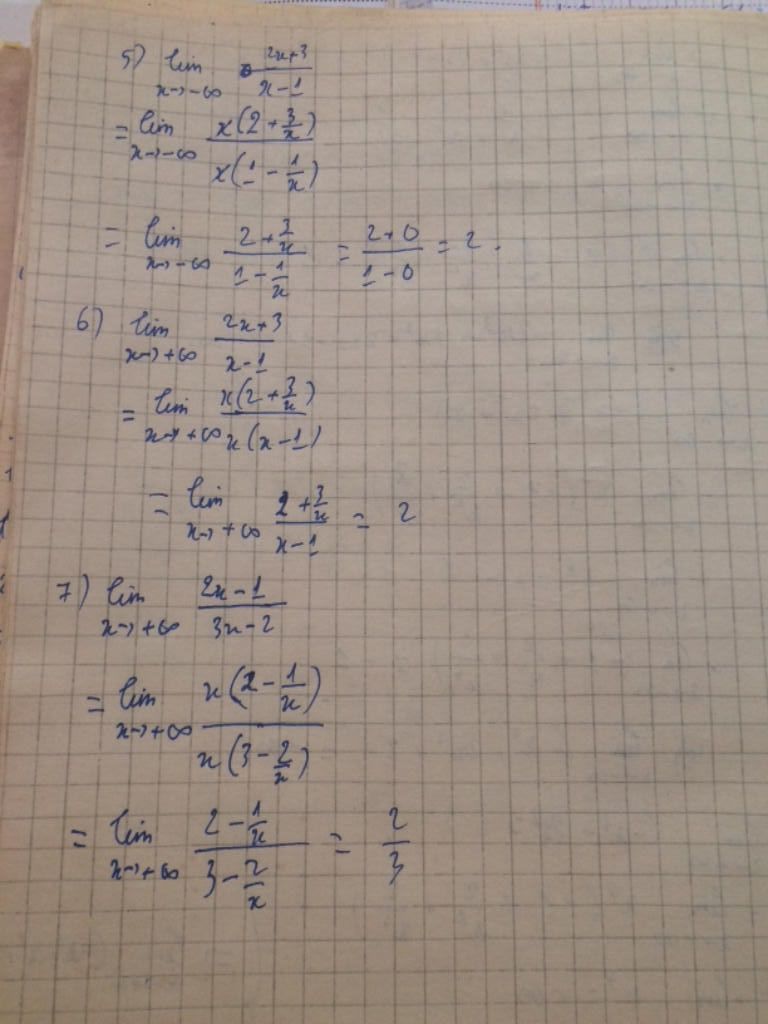 5) lim x→-∞ (2x+3)/(x-1)
= lim x→-∞ x(2 + 3/x) / x(1 - 1/x)
= lim x→-∞ (2 + 3/x)/(1 - 1/x) = (2+0)/(1-0) = 2.
6) lim x→+∞ (2x+3)/(x-1)
= lim x→+∞ x(2 + 3/x) / x(x-1)
= lim x→+∞ (2 + 3/x)/(x-1) = 2
7) lim x→+∞ (2x-1)/(3x-2)
= lim x→+∞ x(2 - 1/x) / x(3 - 2/x)
= lim x→+∞ (2 - 1/x)/(3 - 2/x) = 2/3